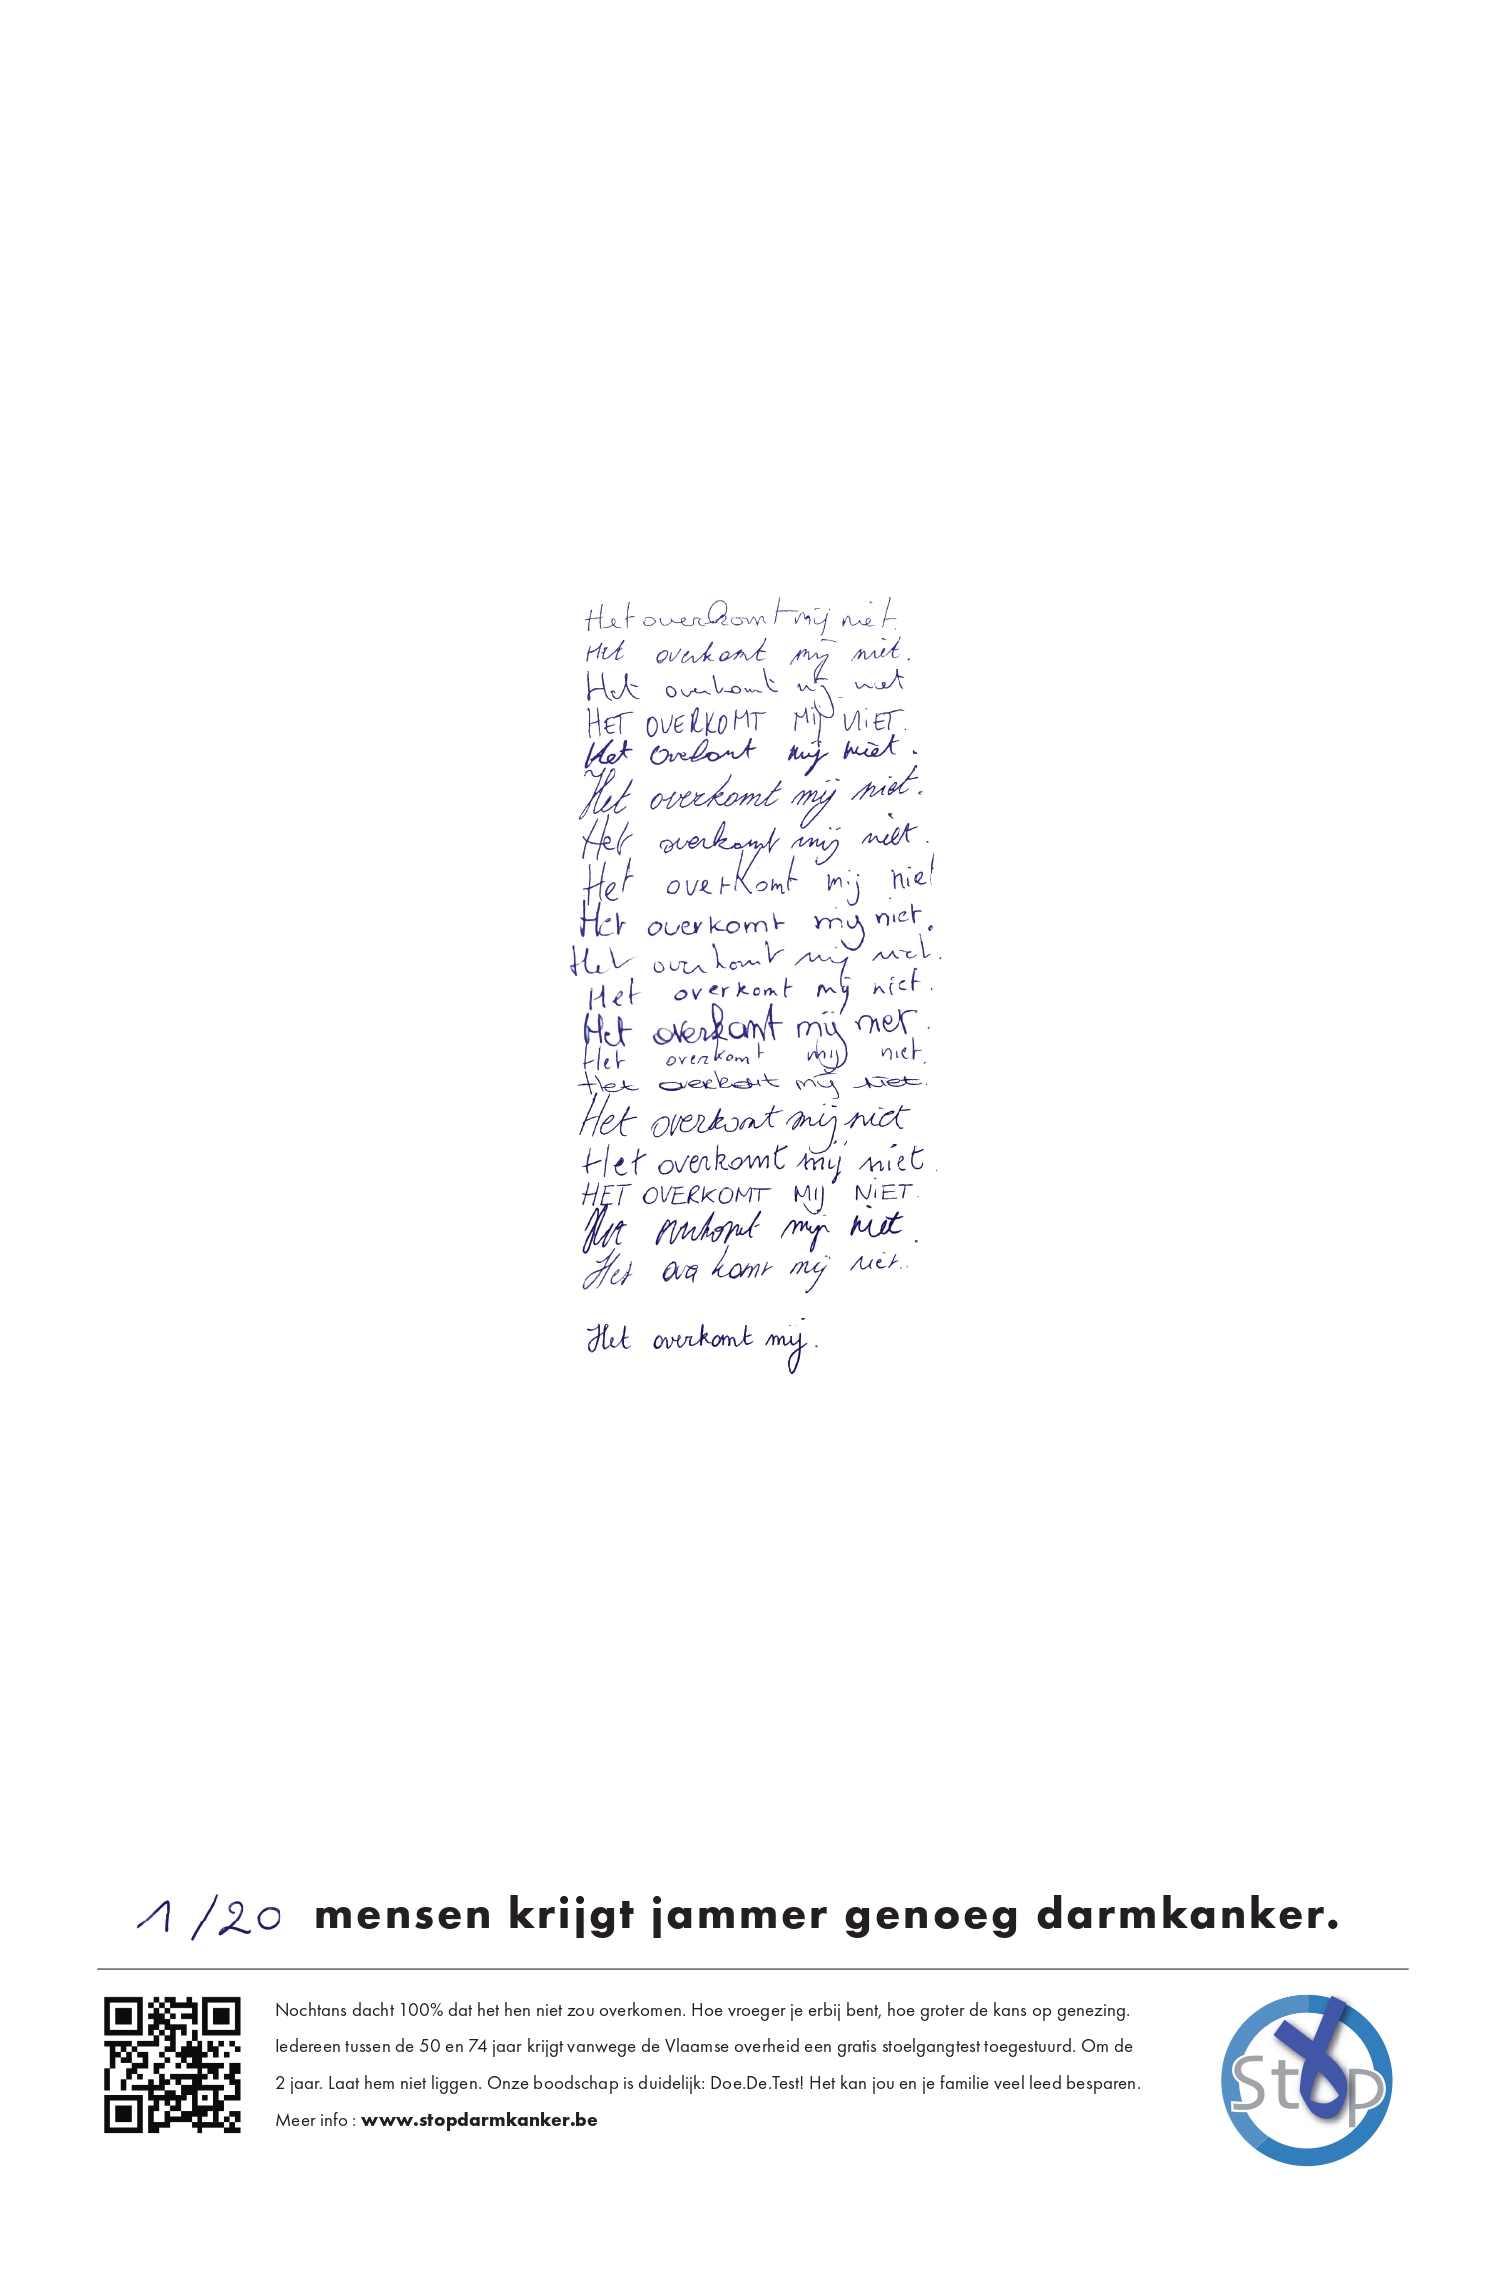 Het overkomt mij niet.
Het overkomt mij niet.
Het overkomt mij niet
HET OVERKOMT MIJ NIET.
Het overkomt mij niet.
Het overkomt mij niet.
Het overkomt mij niet.
Het overkomt mij niet
Het overkomt mij niet.
Het overkomt mij niet.
Het overkomt mij niet.
Het overkomt mij niet.
Het overkomt mij niet.
Het overkomt mij niet.
Het overkomt mij niet
Het overkomt mij niet.
HET OVERKOMT MIJ NIET.
Het overkomt mij niet.
Het overkomt mij niet.
Het overkomt mij.
1/20 mensen krijgt jammer genoeg darmkanker.
Nochtans dacht 100% dat het hen niet zou overkomen. Hoe vroeger je erbij bent, hoe groter de kans op genezing.
Iedereen tussen de 50 en 74 jaar krijgt vanwege de Vlaamse overheid een gratis stoelgangtest toegestuurd. Om de
2 jaar. Laat hem niet liggen. Onze boodschap is duidelijk: Doe.De.Test! Het kan jou en je familie veel leed besparen.
Meer info : www.stopdarmkanker.be
Stop